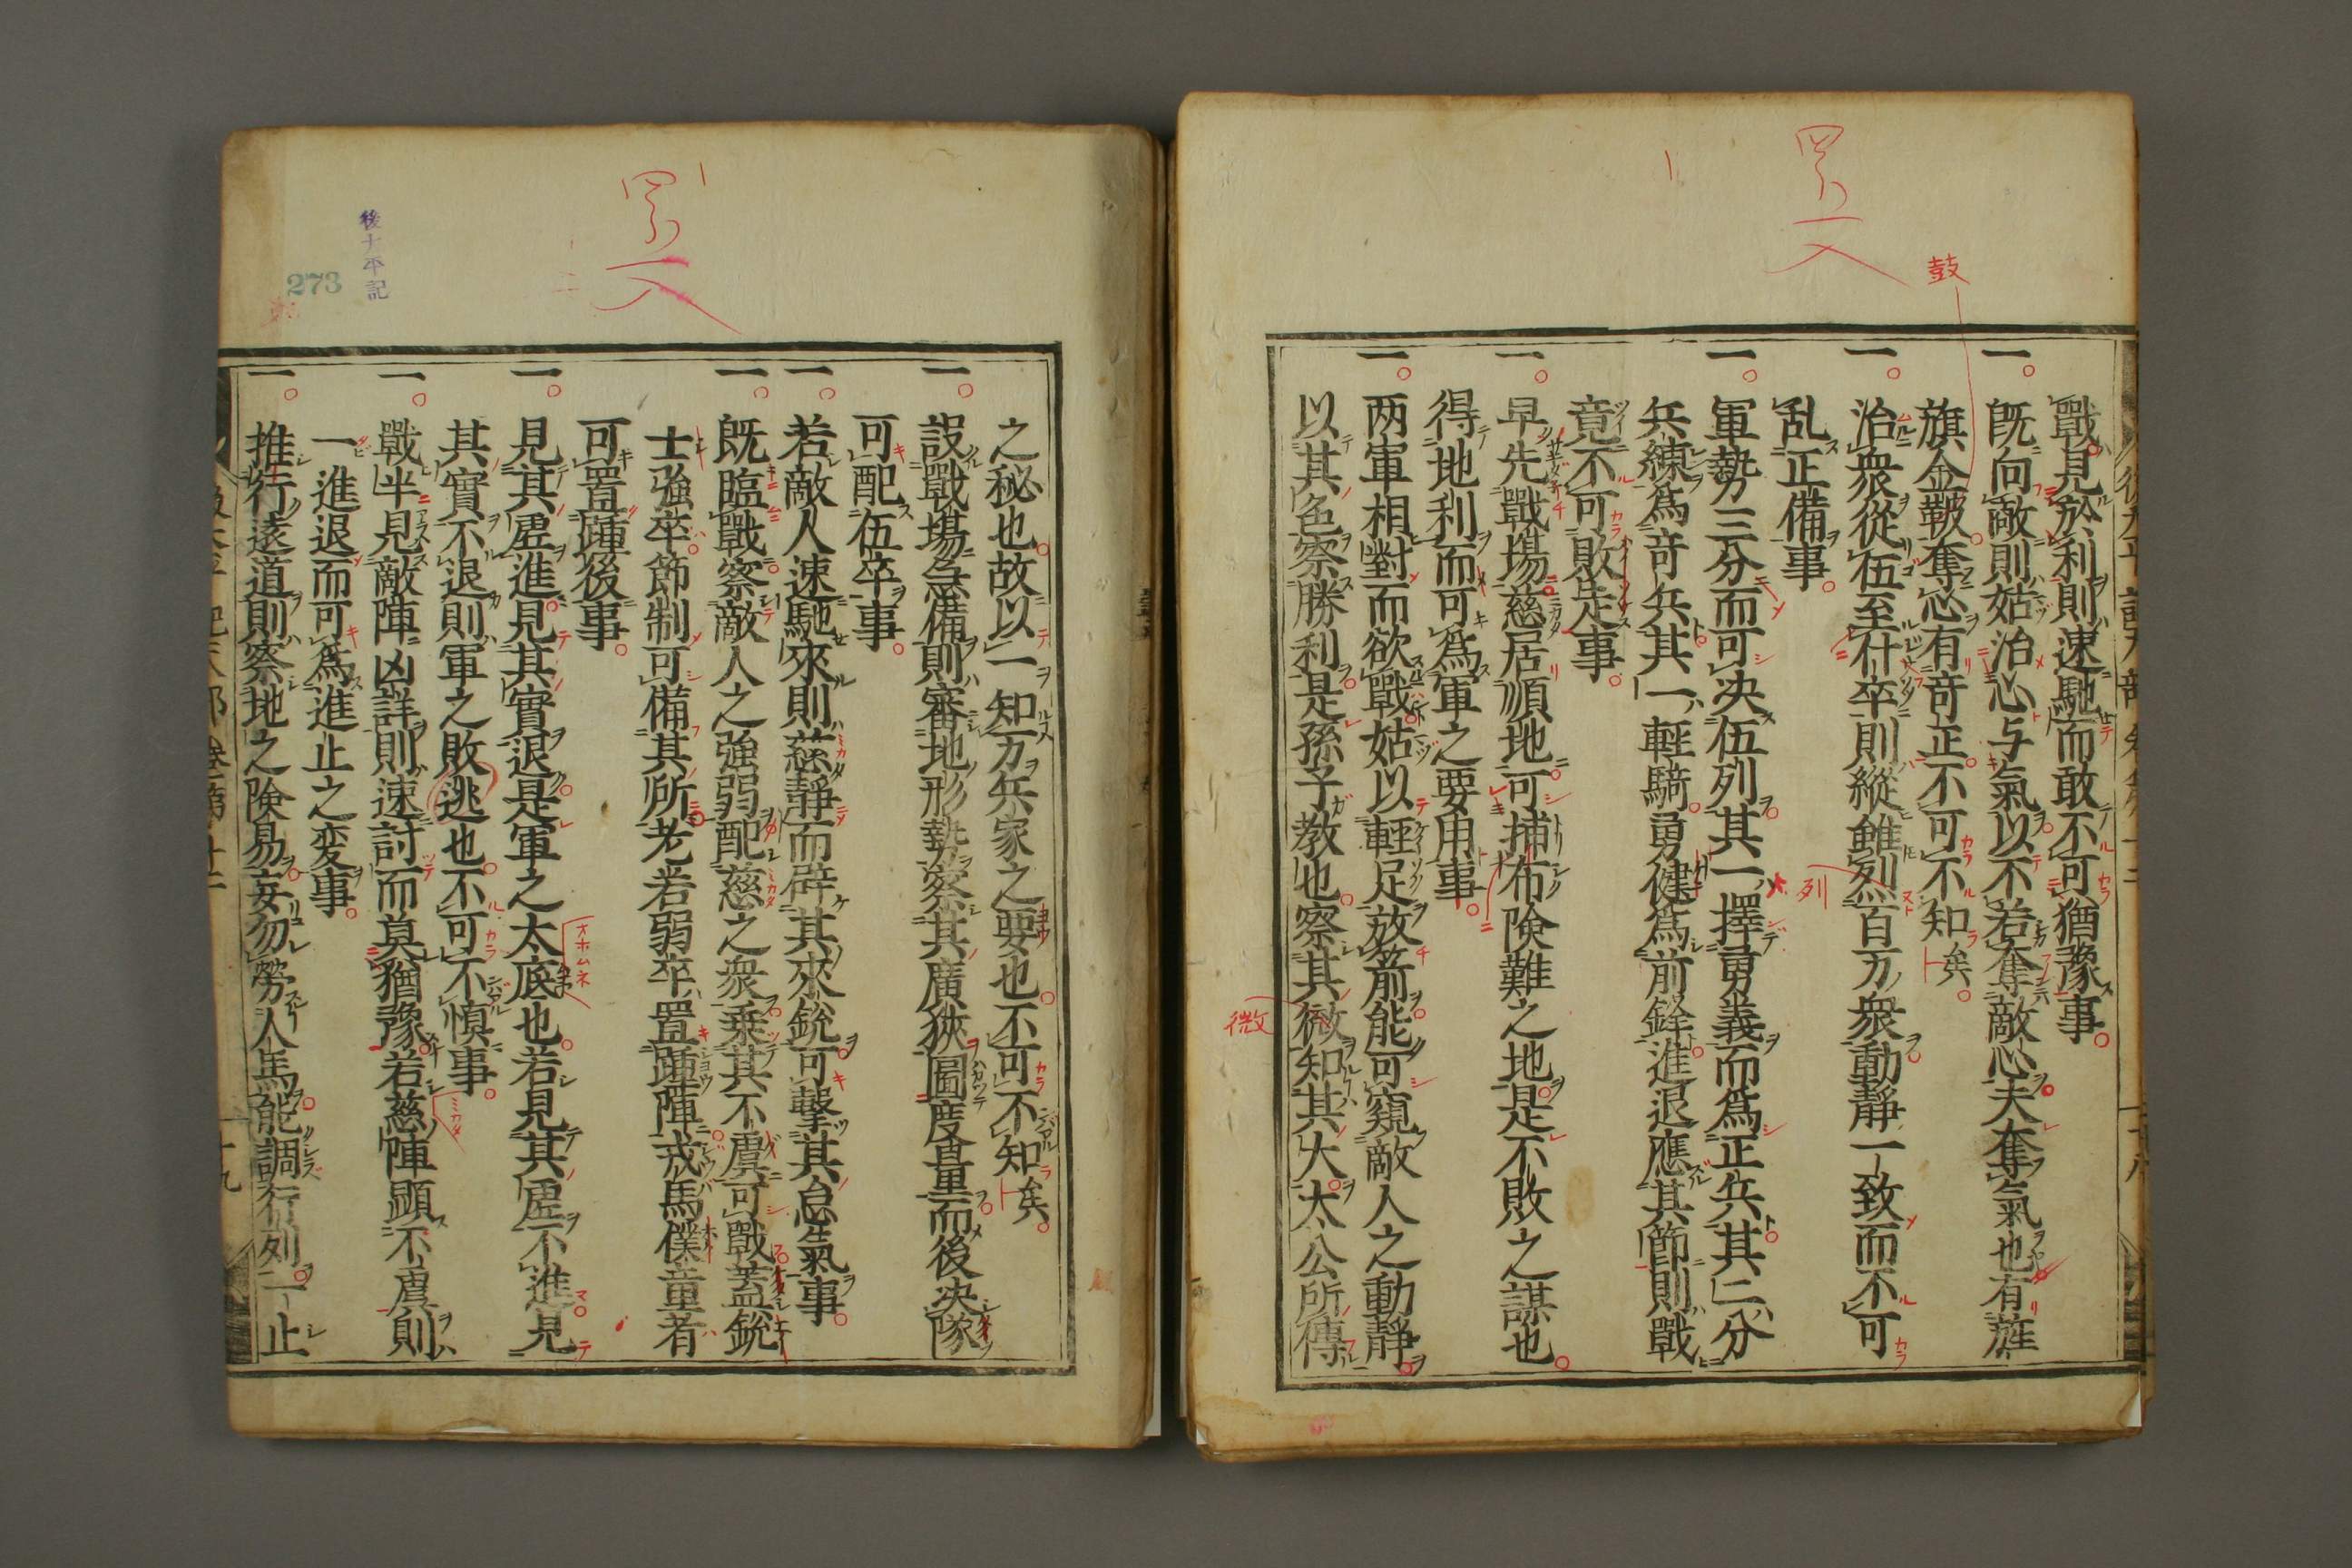 戰見於利則速馳而敢不可猶豫事
一既向敵則姑治心与氣以不若奪敵心夫奪氣也有旌
旗金鞁奪心有竒正不可不知矣
一治衆從伍至什卒則縱雖烈百万衆動靜一致而不可
乱正備事
一軍勢三分而可决伍列其一擇勇義而爲正兵其二分
兵練爲竒兵其一輕騎勇健爲前鋒進退應其節則戰
竟不可敗走事
一早先戰場慈居順地可捕布険難之地是不敗之謀也
得地利而可爲軍之要用事
一两軍相對而欲戰姑以輕足放箭能可窺敵人之動靜
以其色察勝利是孫子教也察其知其大太公所傳
之秘也故以一知万兵家之要也不可不知矣
一設戰場急備則審地形勢察其廣狹圖度量而後决隊
可配伍卒事
一若敵人速馳來則慈靜而辟其來銳可擊其怠氣事
一既臨戰察敵人之強弱配慈之衆乗其不虞可戰蓋銳
士強卒節制可備其所老若弱卒置踵陣戒馬僕童者
可置踵後事
一見其虛進見其實退是軍之太底也若見其虛不進見
其實不退則軍之敗逃也不可不慎事
一戰半見敵陣凶詳則速討而莫猶豫若慈陣顕不虞則
一進退而可爲進止之変事
一推行遠道則察地之険易妄勿勞人馬能調行列一止
鼓
列
微
後太平記
273
オホムネ
ミカタ